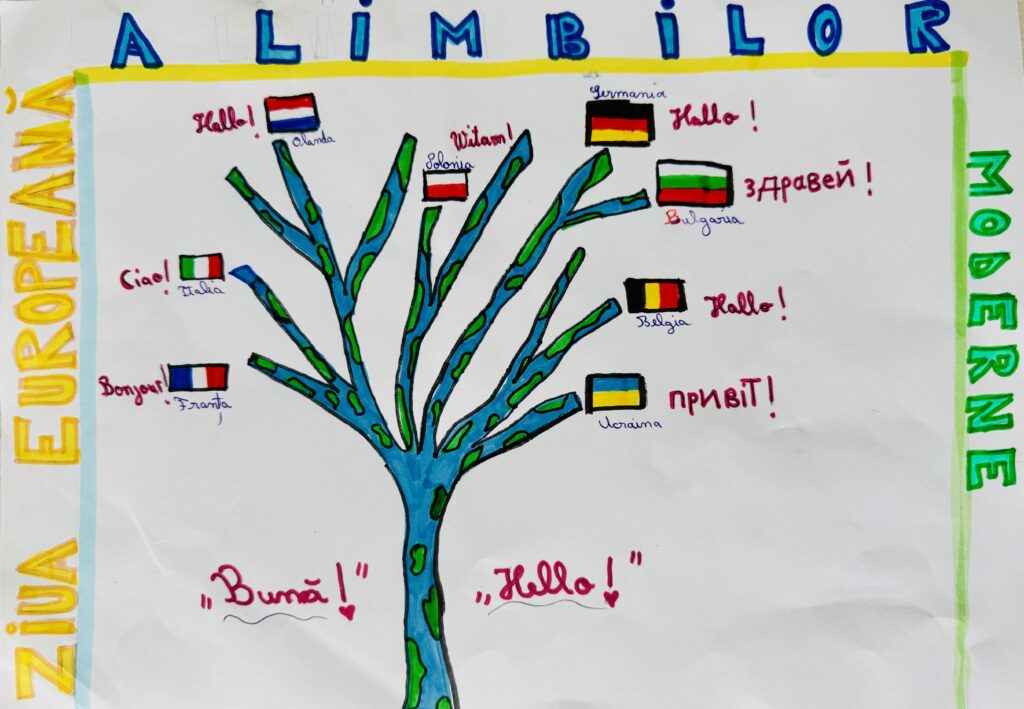 ZIUA EUROPEANĂ
A LIMBILOR
MODERNE
Germania
Hallo!
Olanda
Witam!
Polonia
Hallo!
здравей!
Bulgaria
Ciao!
Italia
Belgia
Hallo!
Bonjour!
Franța
Ucraina
привіт!
„Bună!”
„Hello!”